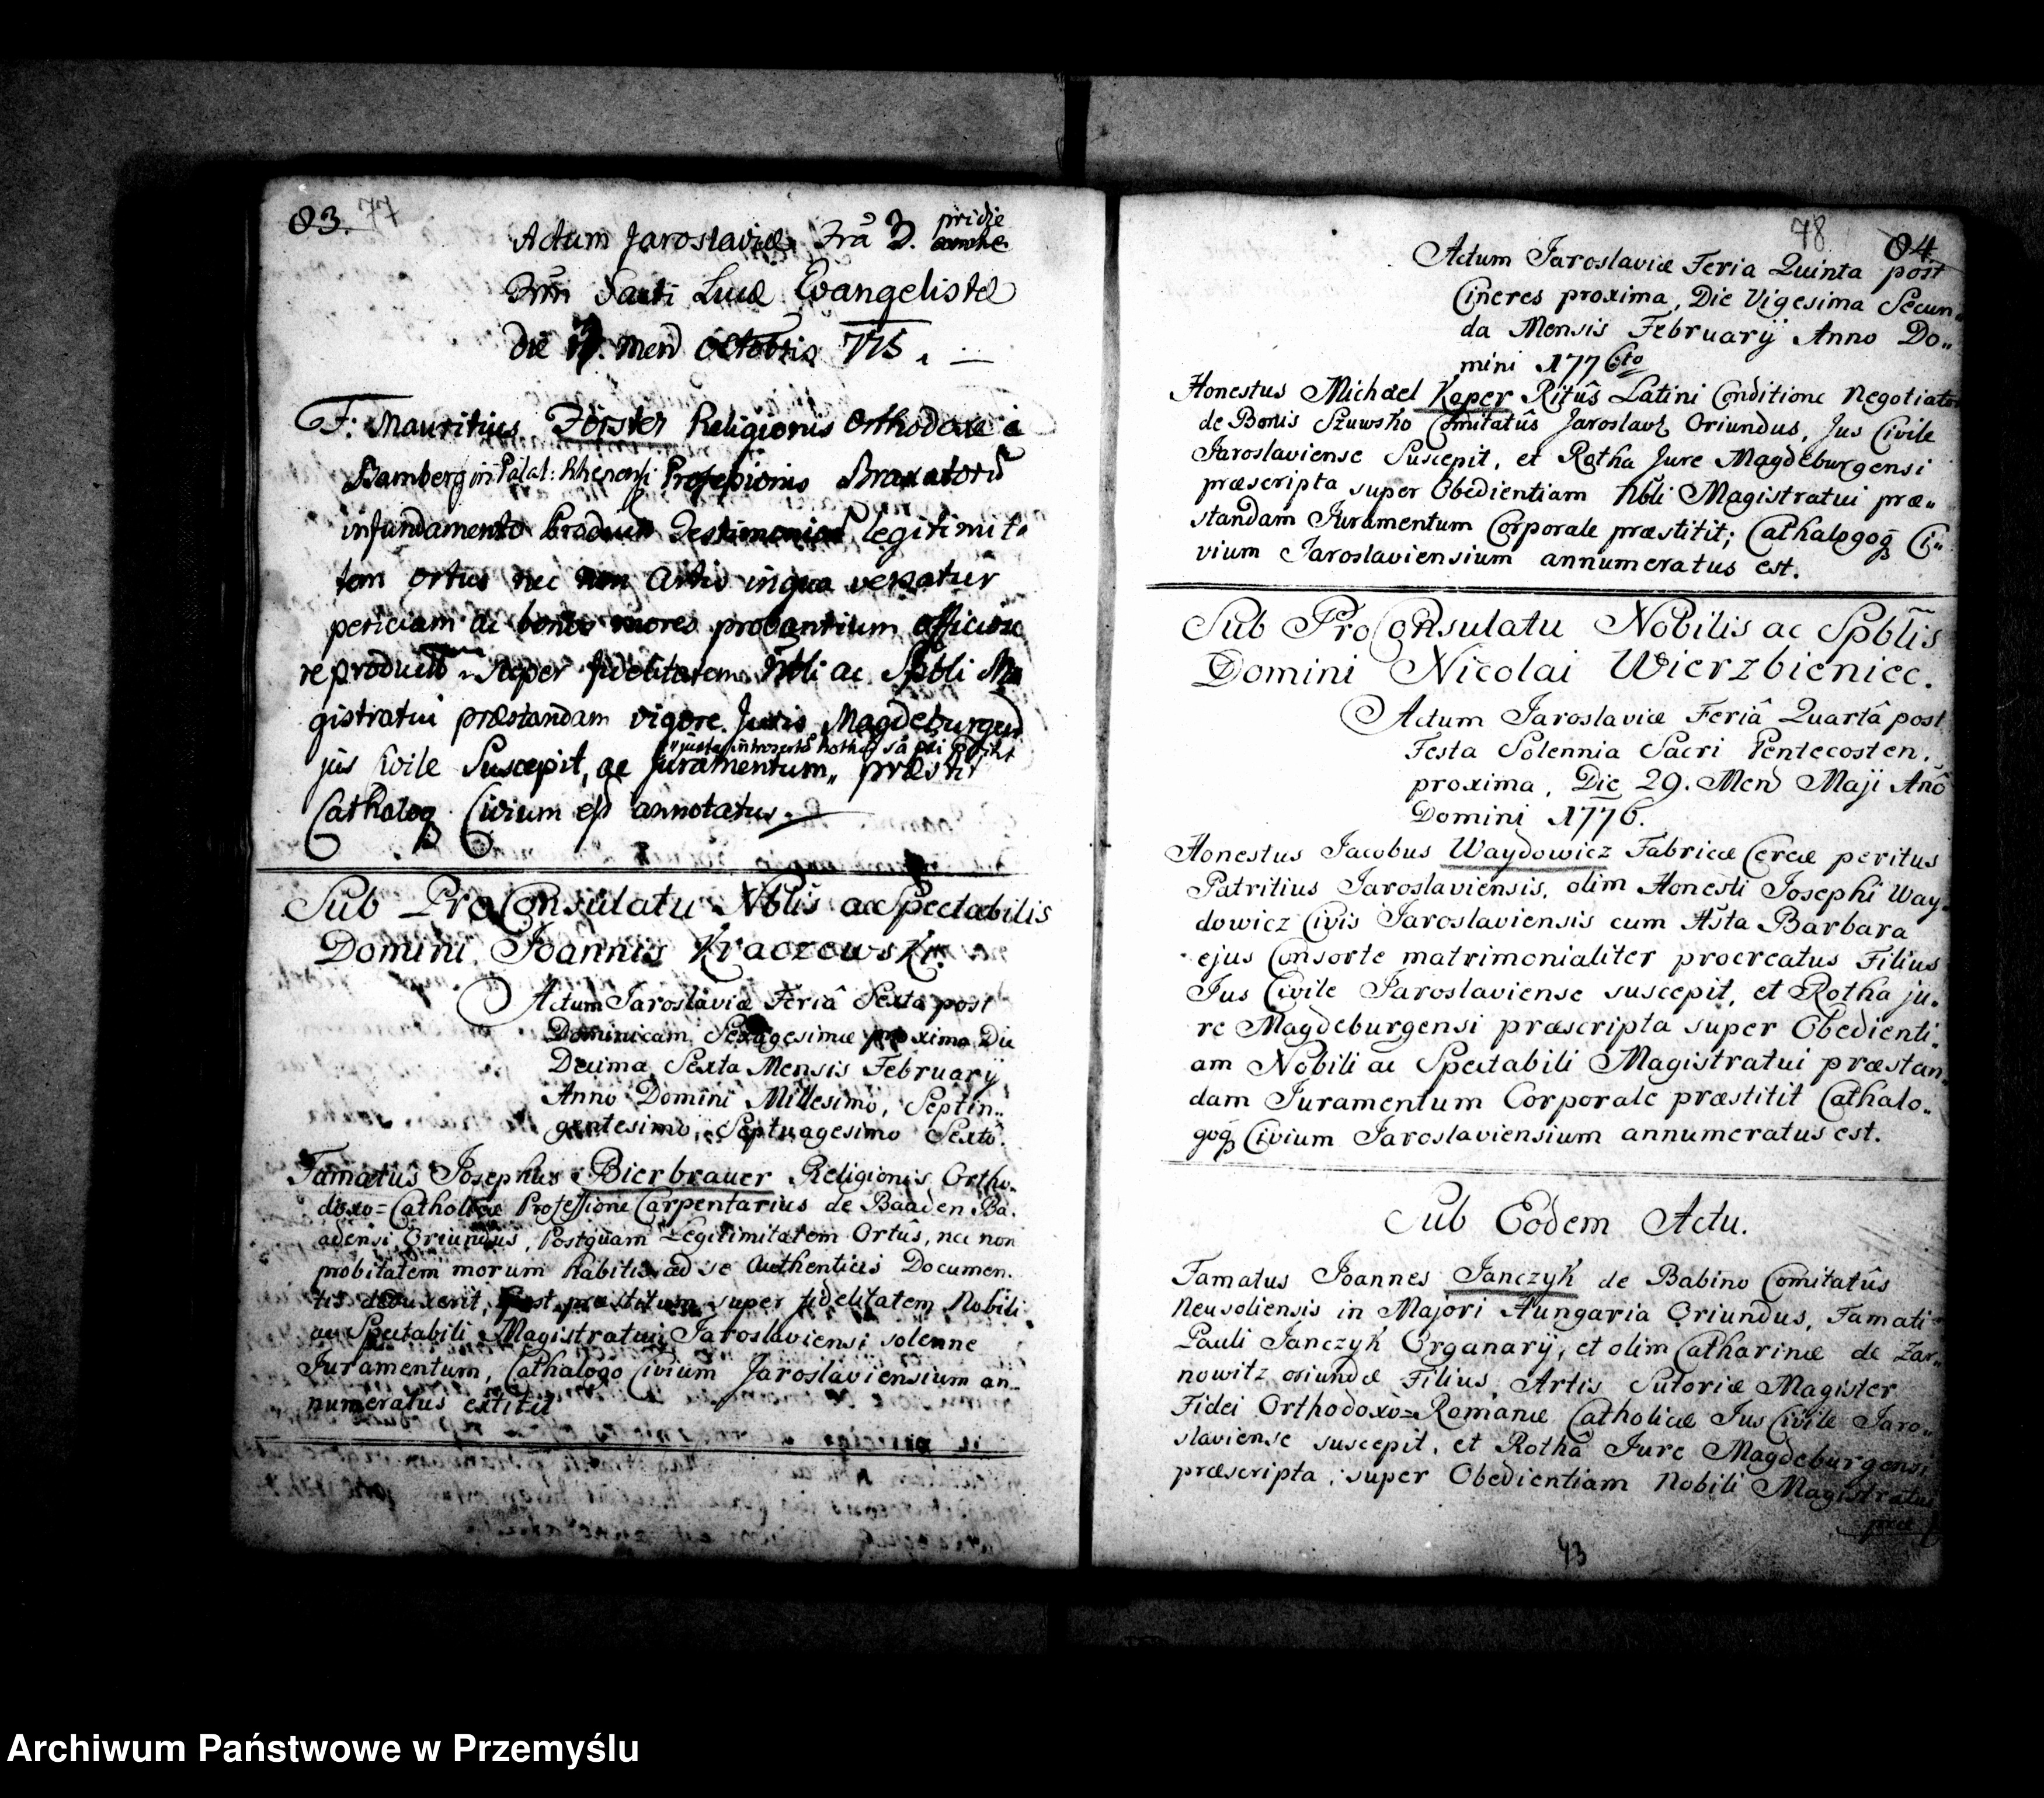 83. 77
Actum Jaroslaviæ Fria 3. pridie
Frm Sancti Lucæ Evangelistæ
die 17. Mens Octobris 775.
F: Mauritius Förster Religionis Orthodoxæ è
Bamberg in Palat: Rhenensi Professionis Braxatoriæ
infundamento Testimonior legitimita
tem ortus nec non Artis inqua versatur
periciam ac bonos mores probantium officiose
reproduct super fidelitatem Nbli ac Spbli Ma
gistratui præstandam vigore Juris Magdeburgens
jus Civile Suscepit, ac Juramentum„ præstit
Cathalog Civium est annotatus.
Sub ProConsulatu Nblis ac Spectabilis
Domini Joannis Kraczewski.
Actum Jaroslaviæ Feriâ Sexta post
Dominicam Sexagesimæ proxima Die
Decima Sexta Mensis February
Anno Domini Millesimo, Septin„
gentesimo, Septuagesimo Sexto.
Famatus Josephus Bierbrauer Religionis Ortho„
doxo=Catholicæ Professione Carpentarius de Baaden Ba„
adensi Oriundus, Postquam Legitimitatem Ortûs, nec non
probitatem morum habitis ad se Authenticis Documen„
tis deduxerit, Post præstitum super fidelitatem Nobili
ac Spectabili Magistratui Jaroslaviensi solenne
Juramentum, Cathalogo Civium Jaroslaviensium an„
numeratus extitit
78 84
Actum Jaroslaviæ Feria Quinta post
Cineres proxima, Die Vigesima Secun„
da Mensis February Anno Do„
mini 1776to
Honestus Michael Koper Ritûs Latini Conditione Negotiator
de Bonis Szuwsko Comitatûs Jaroslavt Oriundus, Jus Civile
Jaroslaviense Suscepit, et Rotha Jure Magdeburgensi
præscripta super Obedientiam Nbli Magistratui præ„
standam Juramentum Corporale præstitit; Cathalogoq Ci„
vium Jaroslaviensium annumeratus est.
Sub ProConsulatu Nobilis ac Spblis
Domini Nicolai Wierzbieniec.
Actum Jaroslaviæ Feriâ Quartâ post
Festa Solennia Sacri Pentecosten.
proxima, Die 29. Mens Maji Anô
Domini 1776.
Honestus Jacobus Waydowicz Fabricæ Cereæ peritus
Patritius Jaroslaviensis, olim Honesti Josephi Way„
dowicz Civis Jaroslaviensis cum Hsta Barbara
ejus Consorte matrimonialiter procreatus Filius
Jus Civile Jaroslaviense suscepit, et Rotha ju„
re Magdeburgensi præscripta super Obedienti„
am Nobili ac Spectabili Magistratui præstan„
dam Juramentum Corporale præstitit Cathalo„
goq Civium Jaroslaviensium annumeratus est.
Sub Eodem Actu.
Famatus Joannes Janczyk de Babino Comitatûs
Neusoliensis in Majori Hungaria Oriundus, Famati
Pauli Janczyk Organarij, et olim Catharinæ de Zar„
nowitz oriundæ Filius, Artis Sutoriæ Magister
Fidei Orthodoxo=Romanæ Catholicæ Jus Civile Jaro„
slaviense suscepit, et Rothâ Jure Magdeburgensi
præscripta, super Obedientiam Nobili Magistratui
præ
43
Archiwum Państwowe w Przemyślu